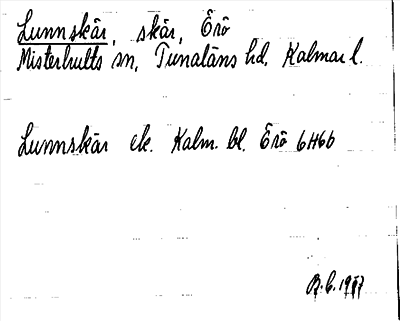 Lunnskär, skär, Örö
Misterhults sn, Tunaläns hd, Kalmar l.
Lunnskär ek. Kalm. bl. Örö 6H6b
B.C. 1977